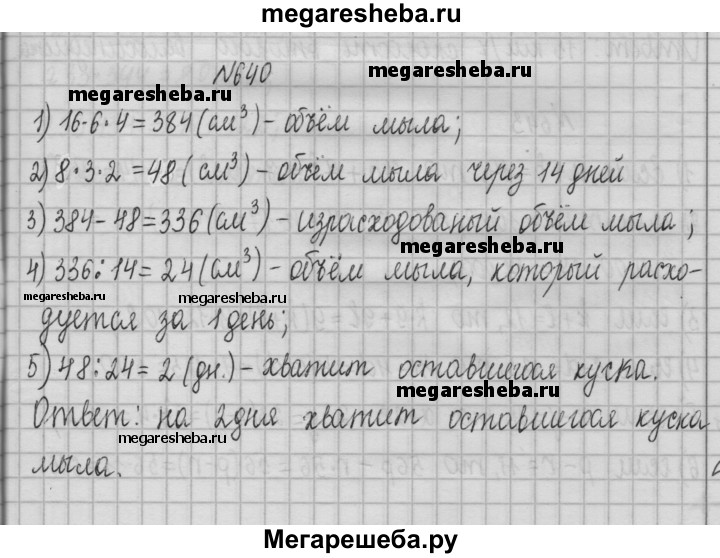 megaresheba.ru
№640
megaresheba.ru
megaresheba.ru
1) 16·6·4=384(см³)-объём мыла;
2) 8·3·2=48(см³)-объём мыла через 14 дней
3) 384-48=336(см³)-израсходованый объём мыла;
megaresheba.ru
4) 336:14=24(см³)-объём мыла, который расхо-
megaresheba.ru
megaresheba.ru
дуется за 1 день;
5) 48:24=2(дн.)-хватит оставшегося куска.
megaresheba.ru
Ответ: на 2дня хватит оставшегося куска
megaresheba.ru
мыла.
Мегарешеба.ру